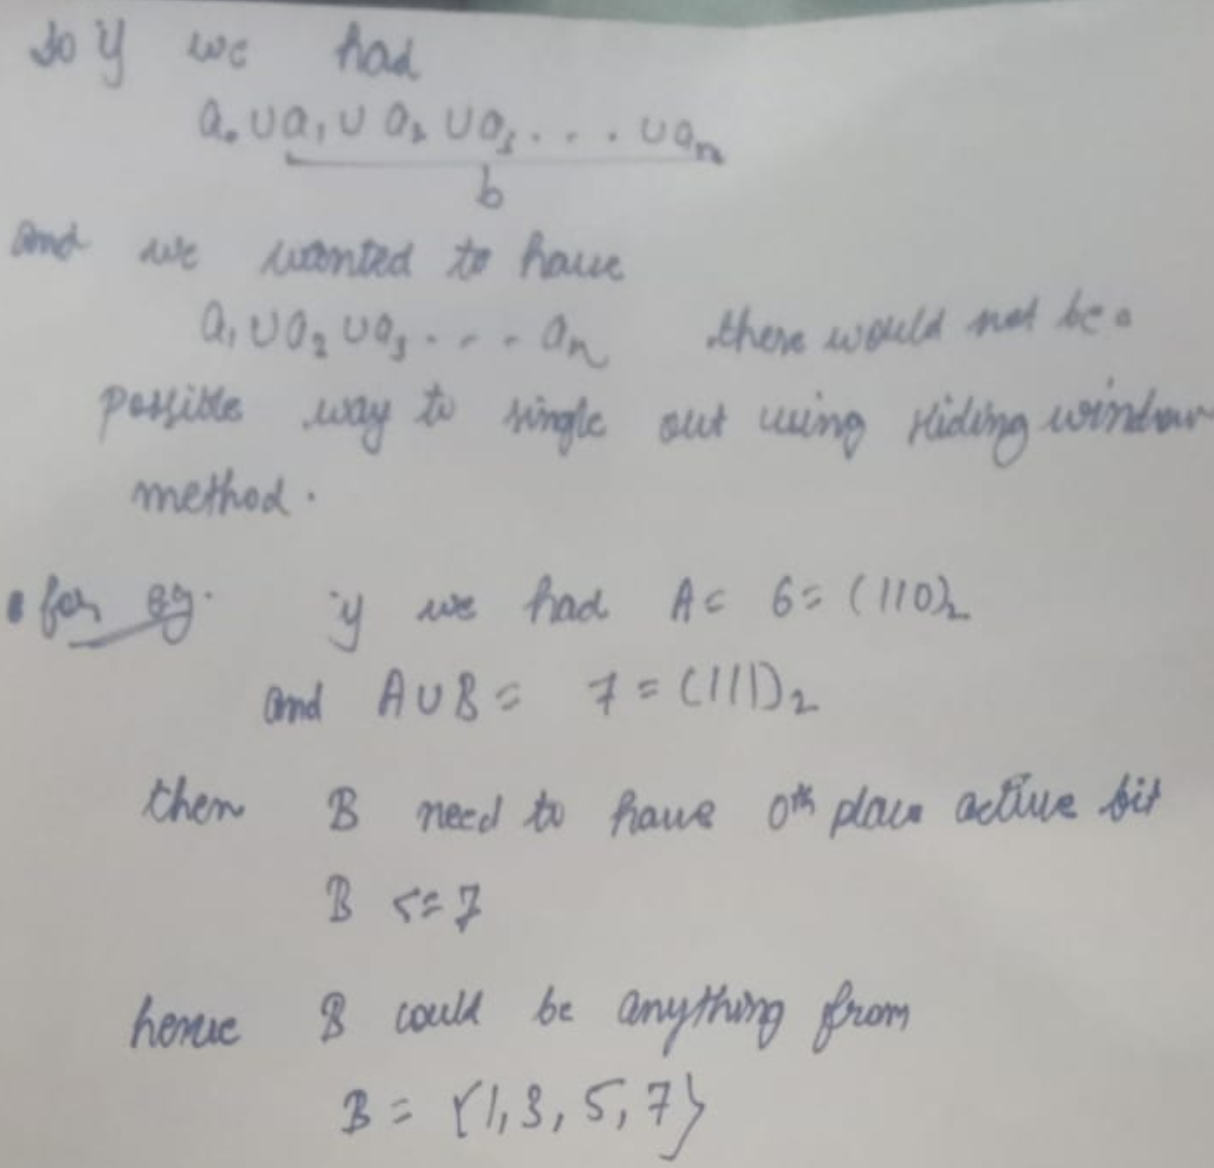 so if we had
a₀ ∪ a₁ ∪ a₂ ∪ a₃ . . . . ∪ aₙ
b
and we wanted to have
a₁ ∪ a₂ ∪ a₃ - - - - aₙ there would not be a
possible way to single out using sliding window
method.
• for eg. if we had A = 6 = (110)₂
and A ∪ B = 7 = (111)₂
then B need to have 0th place active bit
B <= 7
hence B could be anything from
B = {1, 3, 5, 7}